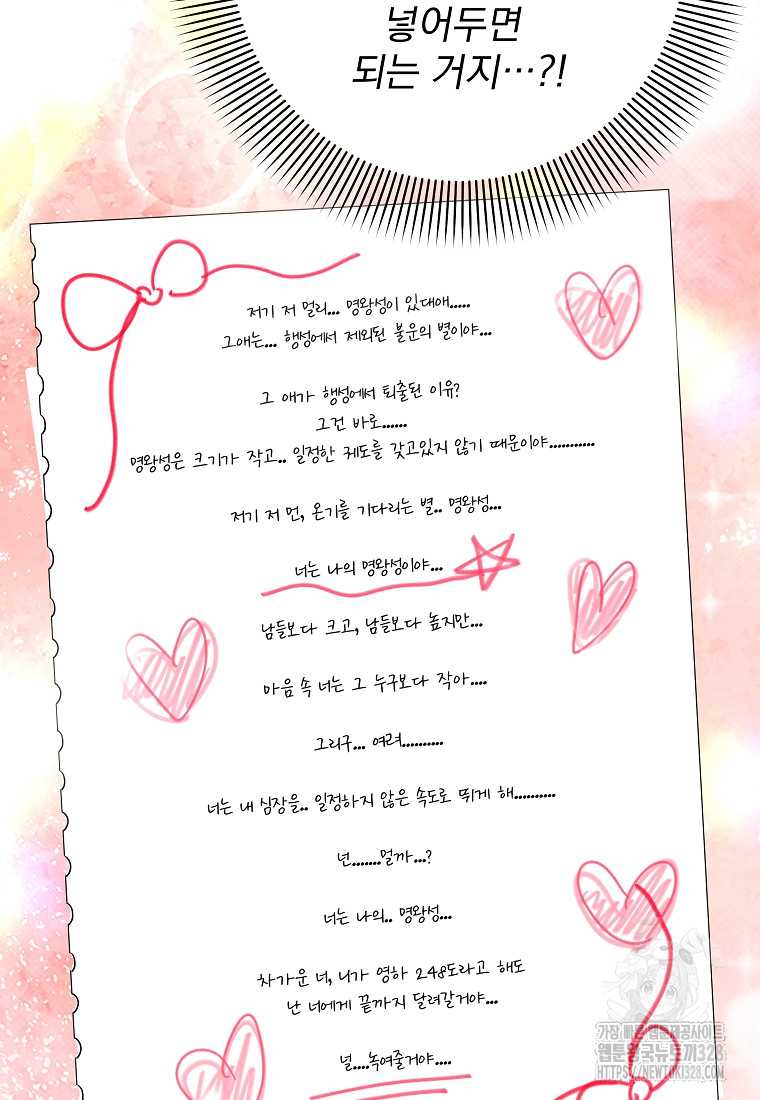 넣어두면
되는 거지…?!
저기 저 멀리... 명왕성이 있대애.....
그애는... 행성에서 제외된 불운의 별이야...
그 애가 행성에서 퇴출된 이유?
그건 바로......
명왕성은 크기가 작고.. 일정한 궤도를 갖고있지 않기 때문이야...........
저기 저 먼, 온기를 기다리는 별.. 명왕성...
너는 나의 명왕성이야...
남들보다 크고, 남들보다 높지만...
마음 속 너는 그 누구보다 작아....
그리구... 여려..........
너는 내 심장을.. 일정하지 않은 속도로 뛰게 해..........
넌.......멀까...?
너는 나의.. 명왕성...
차가운 너, 니가 영하 248도라고 해도
난 너에게 끝까지 달려갈거야...
널....녹여줄거야....
가장 빠른 웹툰제공사이트
웹툰왕국뉴토끼328
https://newtoki328.com